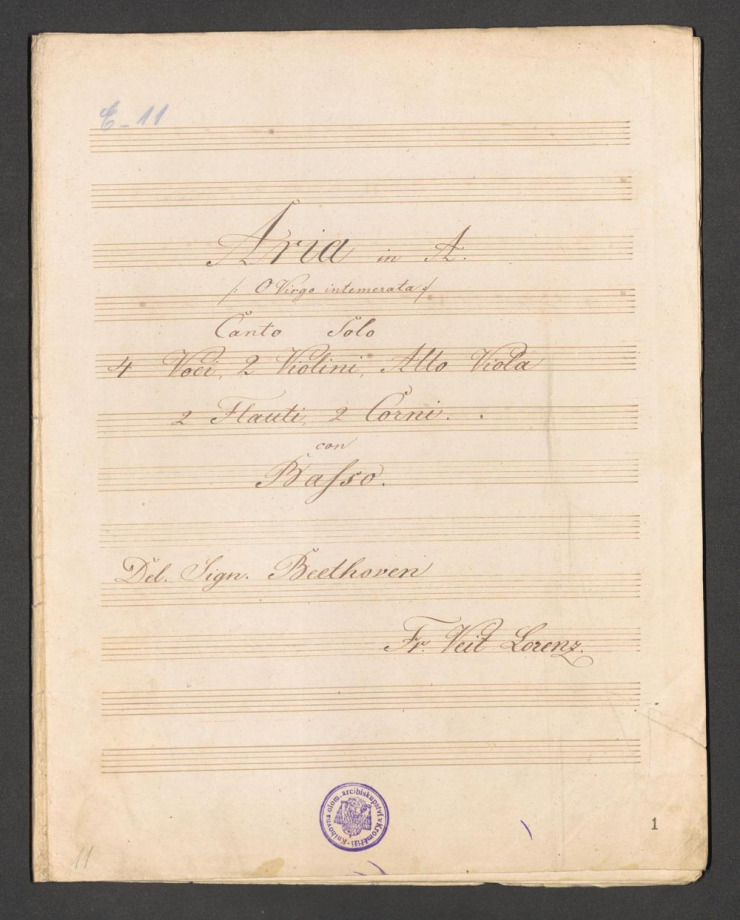 C-11
Aria in A.
/: O Virgo intemerata :/
Canto Solo
4 Voci, 2 Violini, Alto Viola
2 Flauti, 2 Corni.
con
Basso.
Del. Sign. Beethoven
Fr. Veit Lorenz.
Knihovna olom. arcibiskupství v Kroměříži
1
11